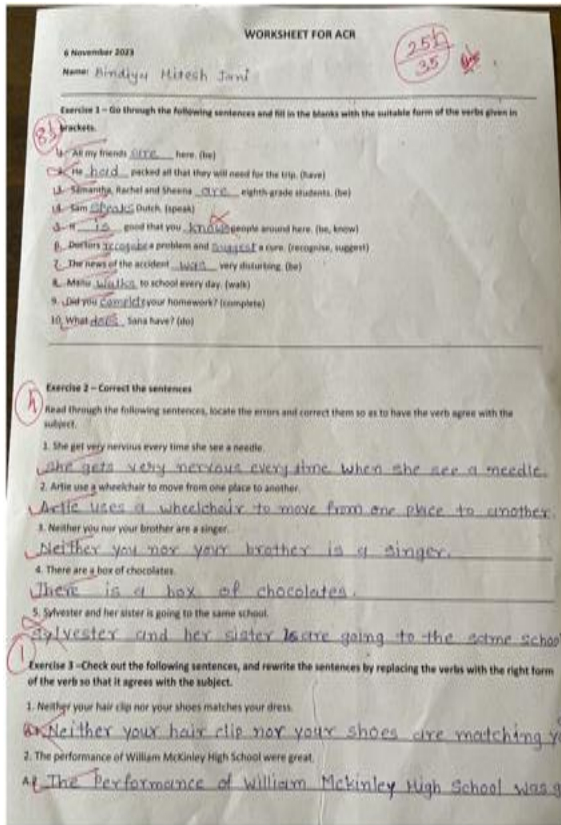 WORKSHEET FOR ACR
25½
35
6 November 2023
Name: Bindiya Mitesh Jani
Exercise 1 – Go through the following sentences and fill in the blanks with the suitable form of the verbs given in
brackets.
8½
1. All my friends are here. (be)
2. He had packed all that they will need for the trip. (have)
3. Samantha, Rachel and Sheena are eighth-grade students. (be)
4. Sam speaks Dutch. (speak)
5. It is good that you knows people around here. (be, know)
6. Doctors recognize a problem and suggest a cure. (recognise, suggest)
7. The news of the accident was very disturbing. (be)
8. Manu walks to school every day. (walk)
9. Did you complete your homework? (complete)
10. What does Sana have? (do)
Exercise 2 – Correct the sentences
4
Read through the following sentences, locate the errors and correct them so as to have the verb agree with the
subject.
1. She get very nervous every time she see a needle.
She gets very nervous every time when she see a needle.
2. Artie use a wheelchair to move from one place to another.
Artie uses a wheelchair to move from one place to another.
3. Neither you nor your brother are a singer.
Neither you nor your brother is a singer.
4. There are a box of chocolates.
There is a box of chocolates.
5. Sylvester and her sister is going to the same school.
Sylvester and her sister are going to the same school
1
Exercise 3 –Check out the following sentences, and rewrite the sentences by replacing the verbs with the right form
of the verb so that it agrees with the subject.
1. Neither your hair clip nor your shoes matches your dress.
Neither your hair clip nor your shoes are matching
2. The performance of William McKinley High School were great.
The Performance of William Mckinley High School was